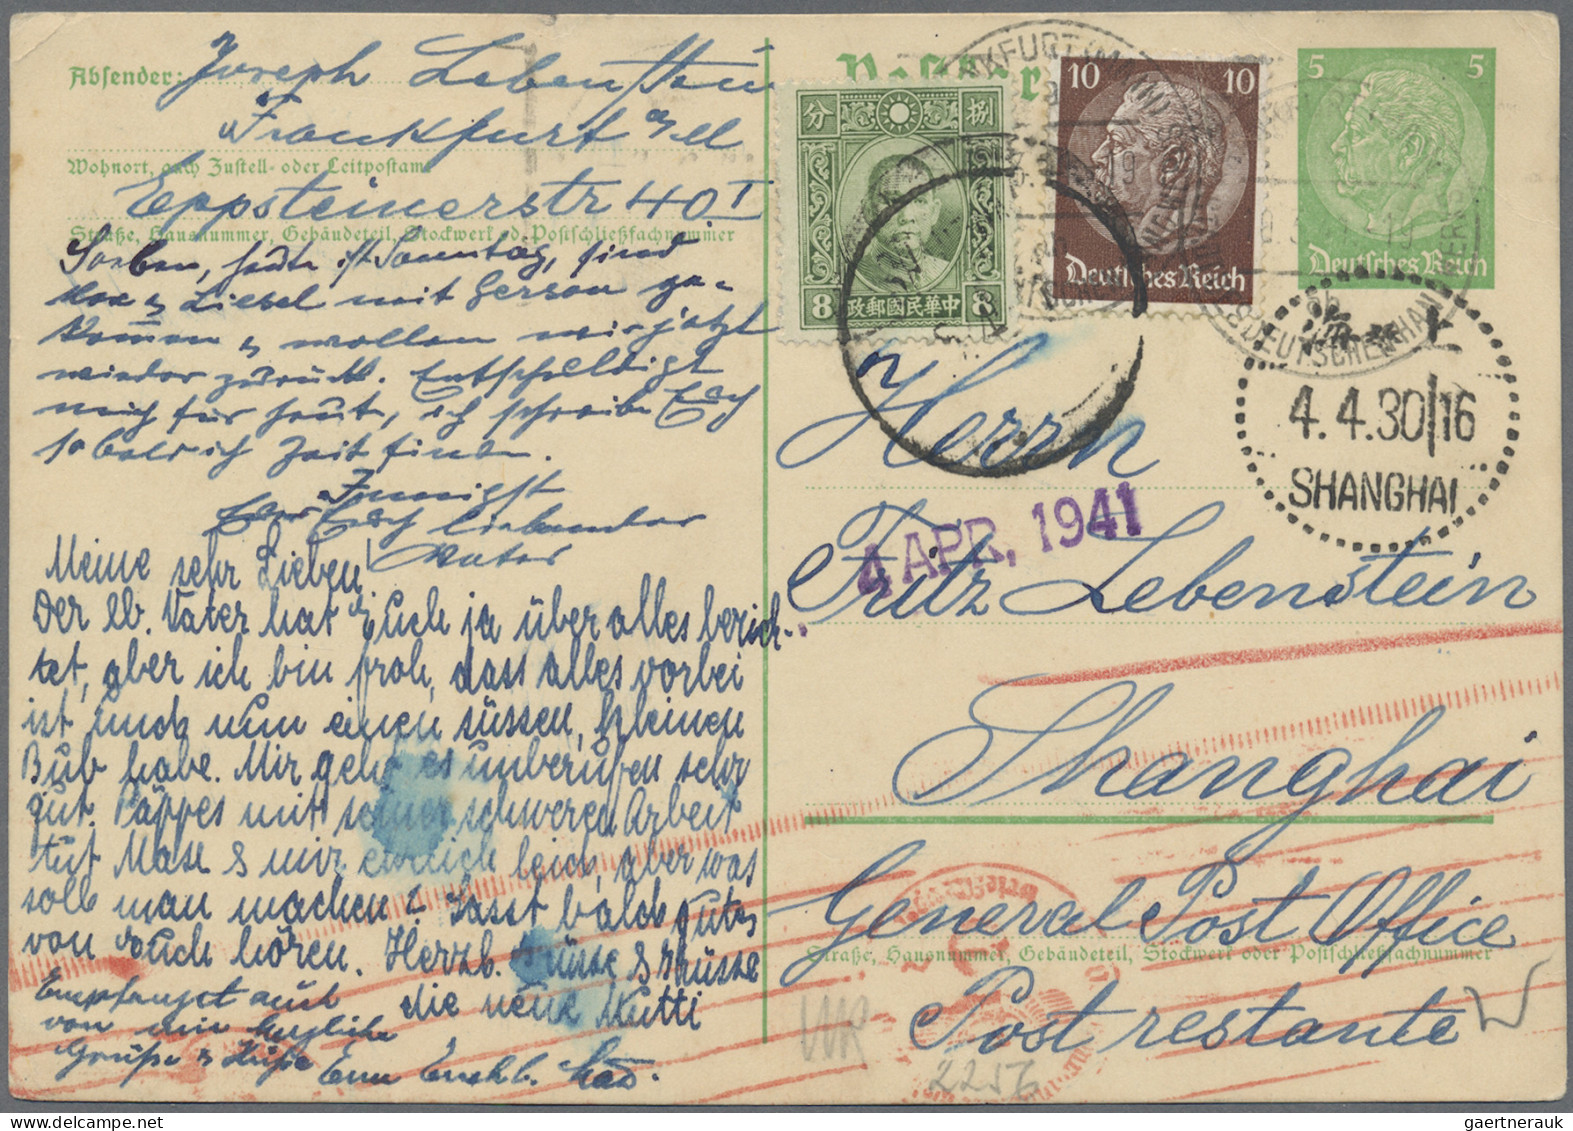 Absender: Joseph Lebenstein
Frankfurt a/M
Wohnort, auch Zustell- oder Leitpostamt
Eppsteinerstr 40 I
Straße, Hausnummer, Gebäudeteil, Stockwerk od. Postschließfachnummer
Soeben, heute ist Sonntag, sind
Max & Liesel mit Gerson ge-
kommen & wollen wir jetzt
wieder zurück. Entschuldigt
mich für heut, ich schreibe Euch
sobald ich Zeit finde.
Innigst
Euer Euch liebender
Vater
Meine sehr Lieben,
Der lb. Vater hat Euch ja über alles berich-
tet, aber ich bin froh, dass alles vorbei
ist und nun einen süssen, kleinen
Bub habe. Mir geht es unberufen sehr
gut. Pappes mit seiner schweren Arbeit
tut Maxe & mir ehrlich leid, aber was
soll man machen? Lasst bald gutes
von Euch hören. Herzl. Küsse & Grüsse
die neue Mutti
Empfanget auch
von mir herzliche
Grüße & Küße
Postkarte
分 捌
8 8
中華民國郵政
10 10
Deutsches Reich
5 5
Deutsches Reich
4.4.30|16
SHANGHAI
4 APR. 1941
Herrn
Fritz Lebenstein
Shanghai
General Post Office
Straße, Hausnummer, Gebäudeteil, Stockwerk oder Postschließfachnummer
Post restante
gaertnerauk